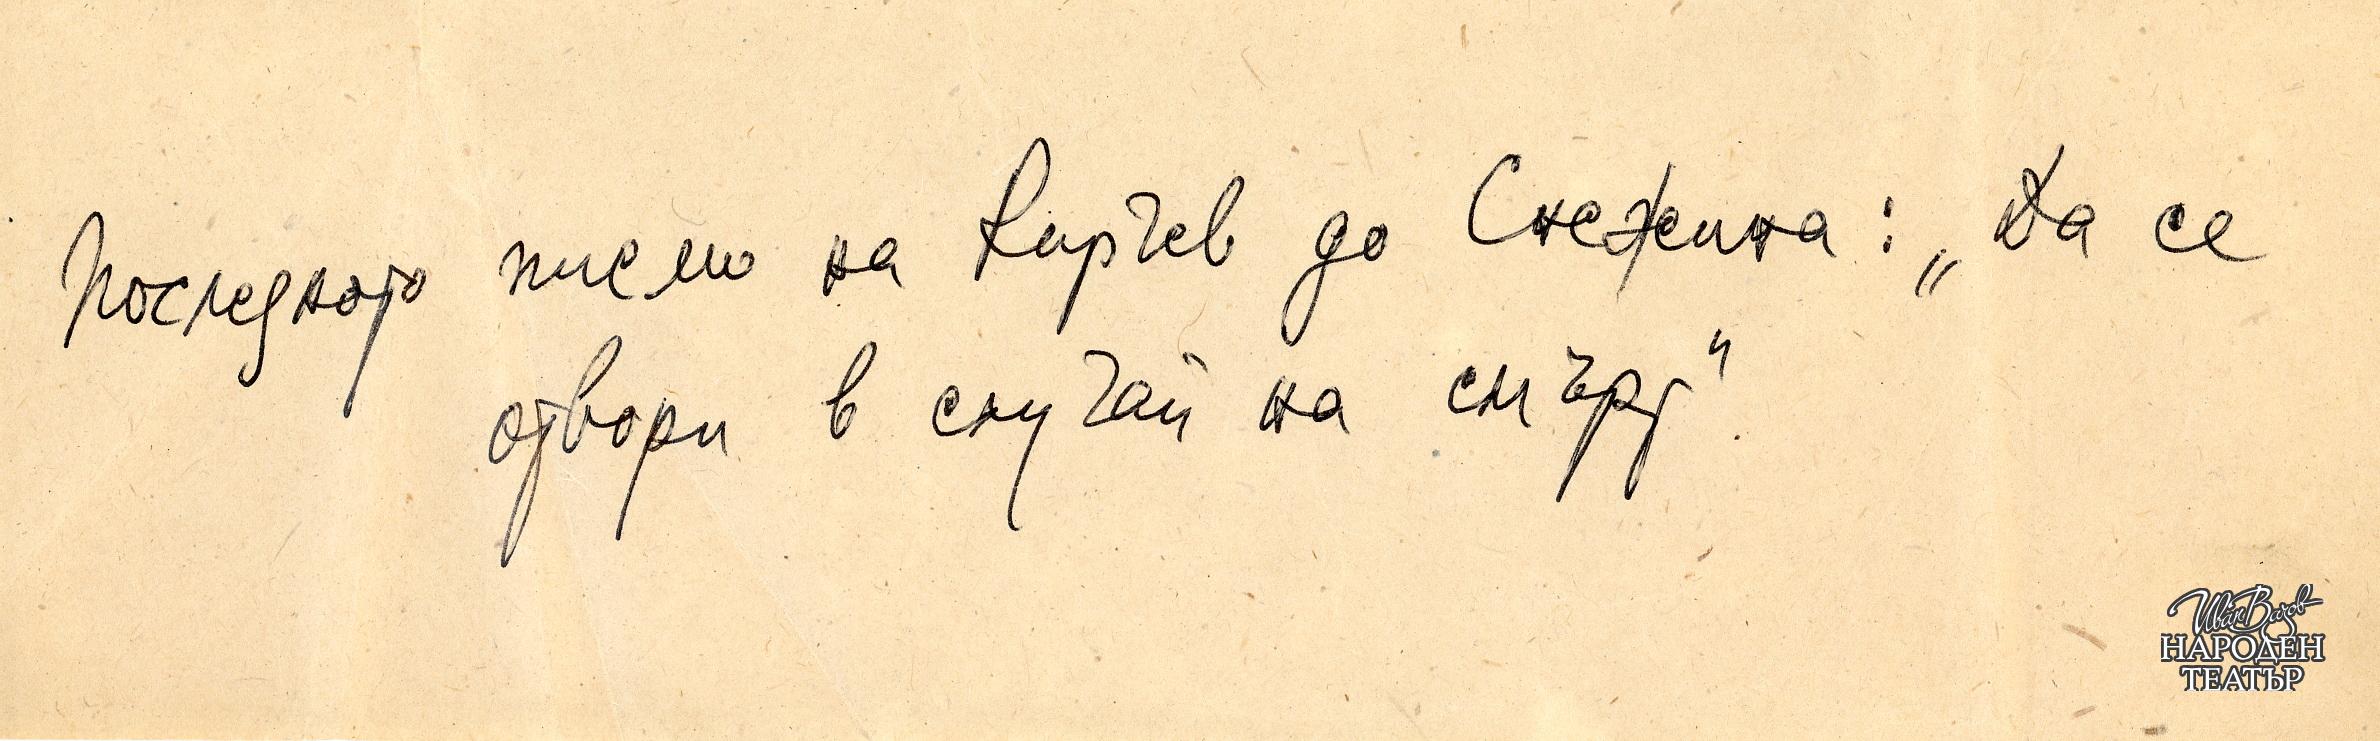 Последното писмо на Кирчев до Снежина: „Да се
отвори в случай на смърт".
Иван Вазов
НАРОДЕН
ТЕАТЪР